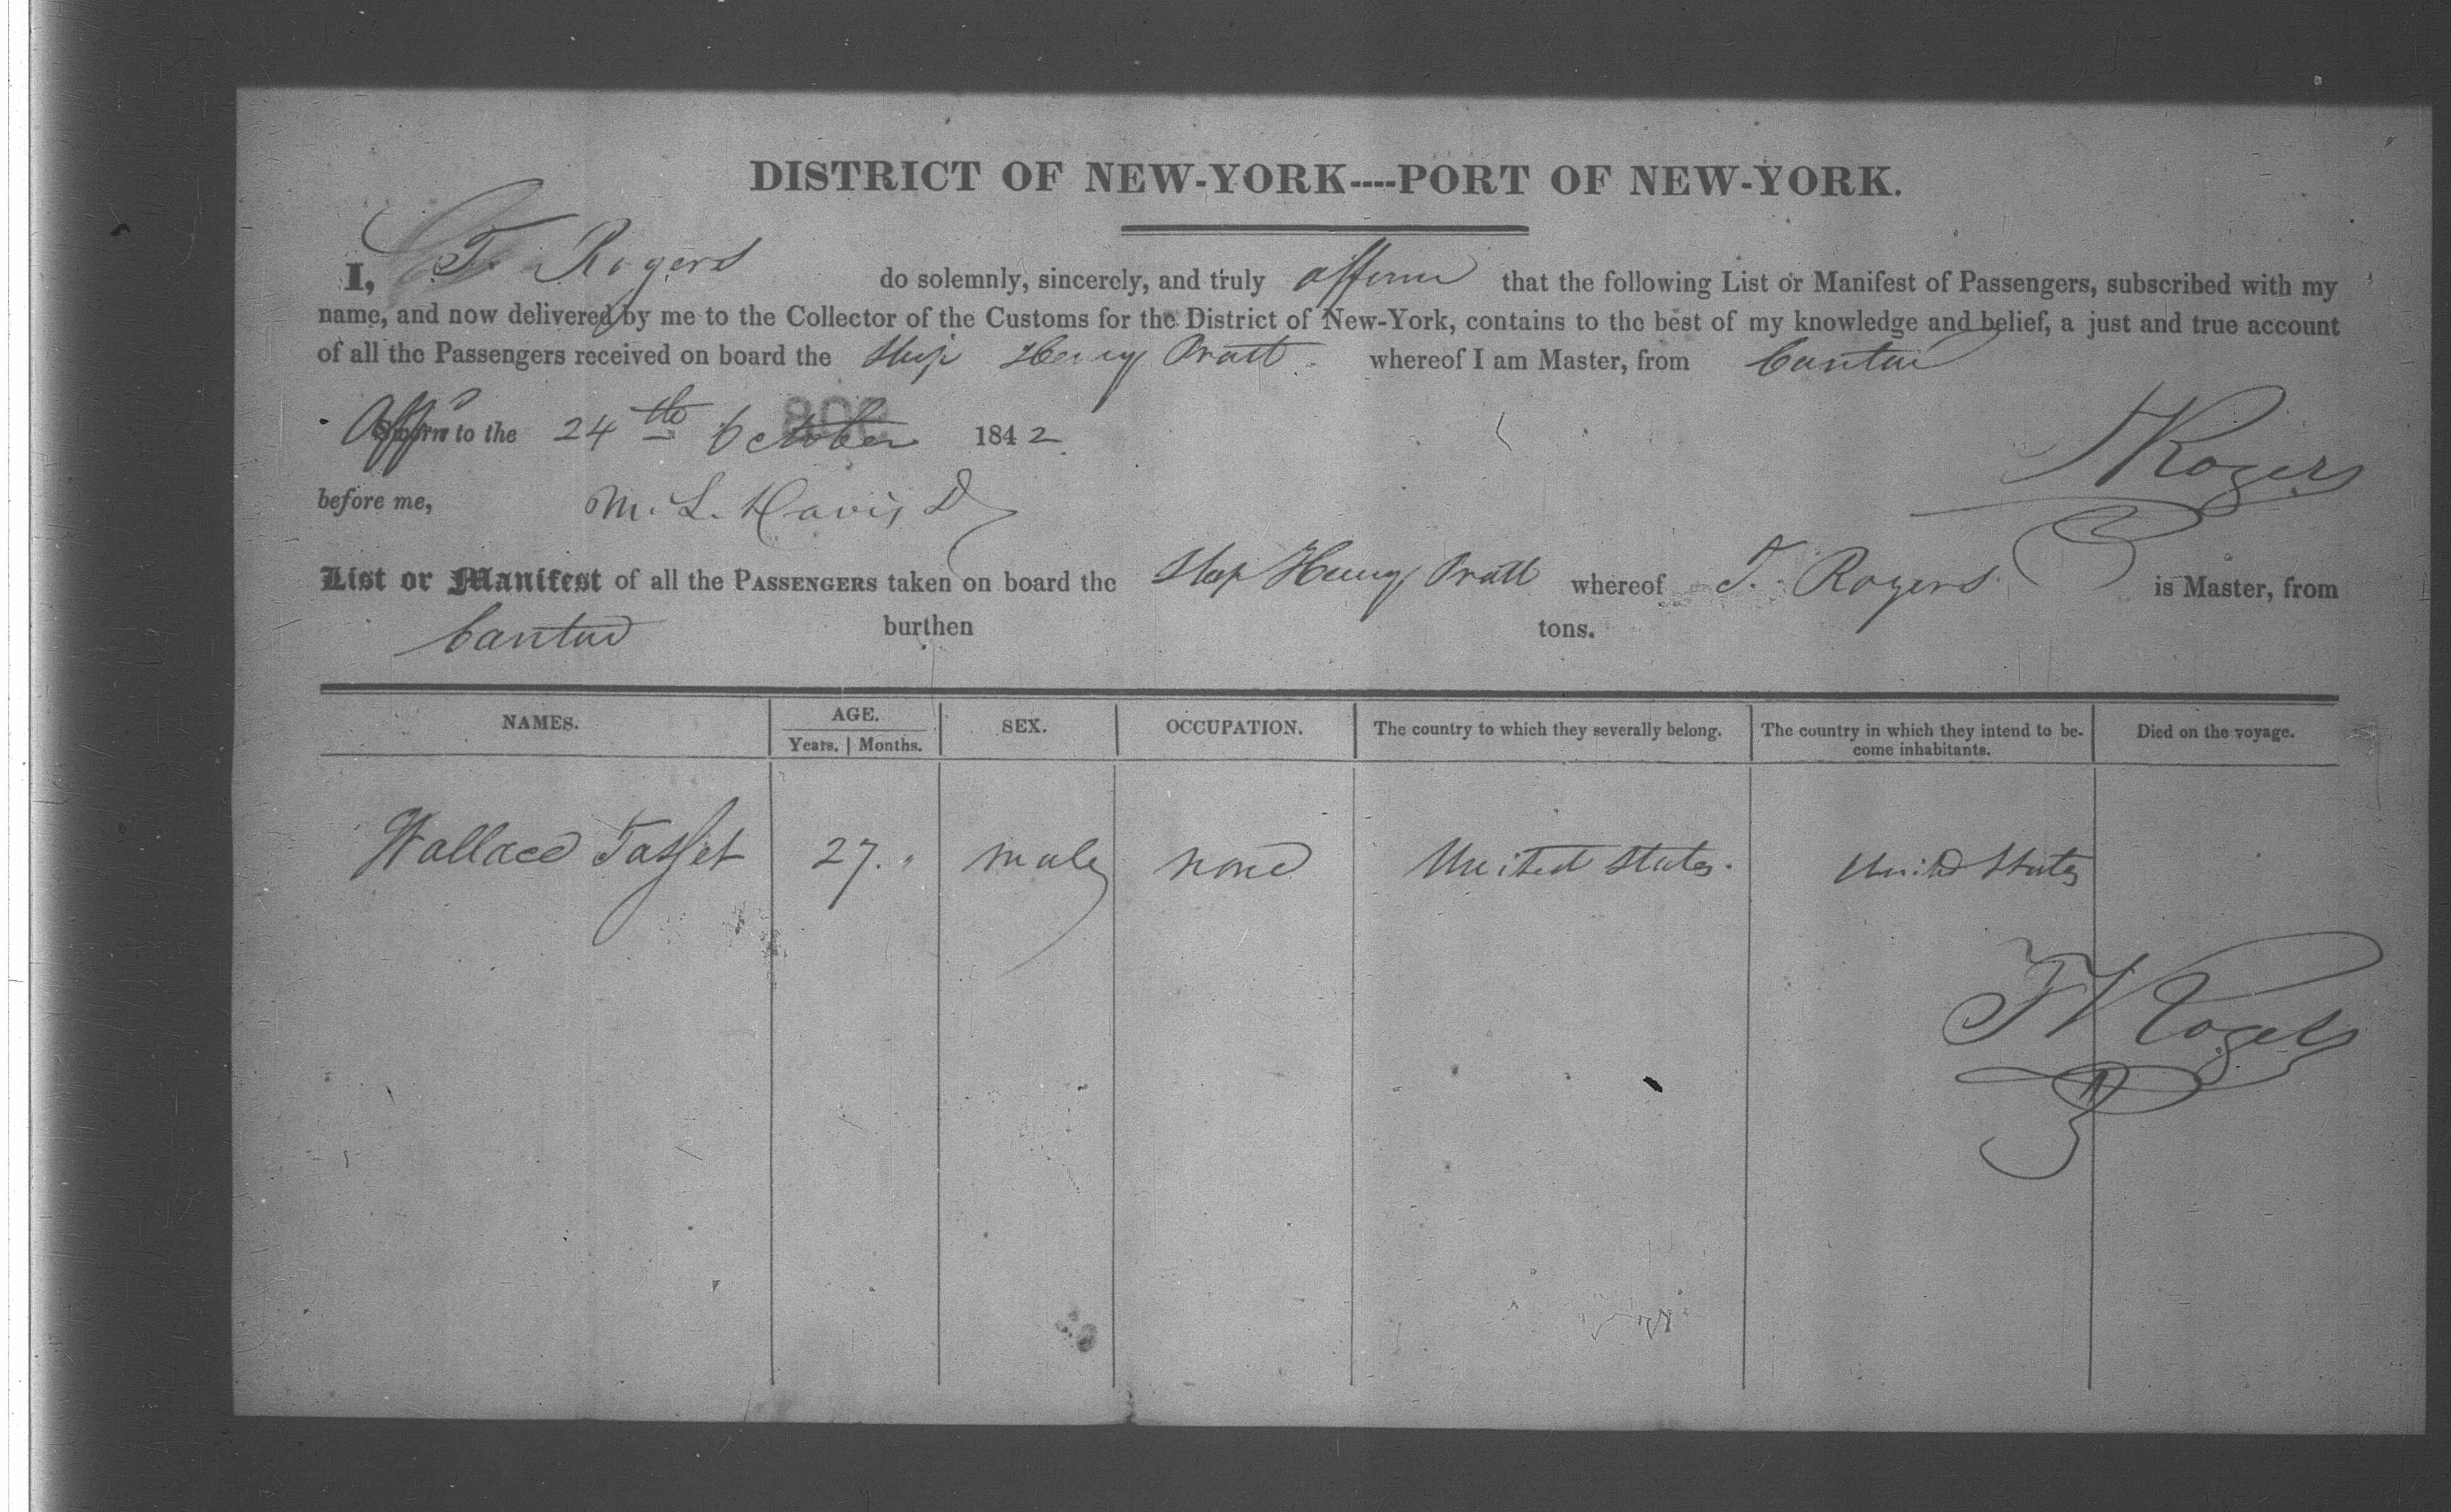 DISTRICT OF NEW-YORK----PORT OF NEW-YORK.
I, T. Rogers do solemnly, sincerely, and truly affirm that the following List or Manifest of Passengers, subscribed with my
name, and now delivered by me to the Collector of the Customs for the District of New-York, contains to the best of my knowledge and belief, a just and true account
of all the Passengers received on board the Ship Henry Pratt whereof I am Master, from Canton
Aff'd to the 24th October 1842.
808
T Rogers
before me, M. L. Davis
List or Manifest of all the PASSENGERS taken on board the Ship Henry Pratt whereof T. Rogers is Master, from
Canton burthen tons.
NAMES. AGE. SEX. OCCUPATION. The country to which they severally belong. The country in which they intend to be- Died on the voyage.
Years. Months. come inhabitants.
Wallace 27. " male none United States. United States
T Rogers